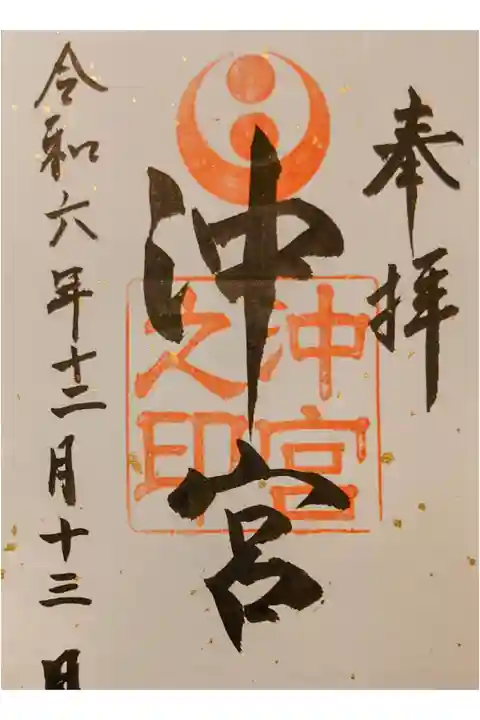 奉拝
沖宮
沖宮之印
令和六年十二月十三日